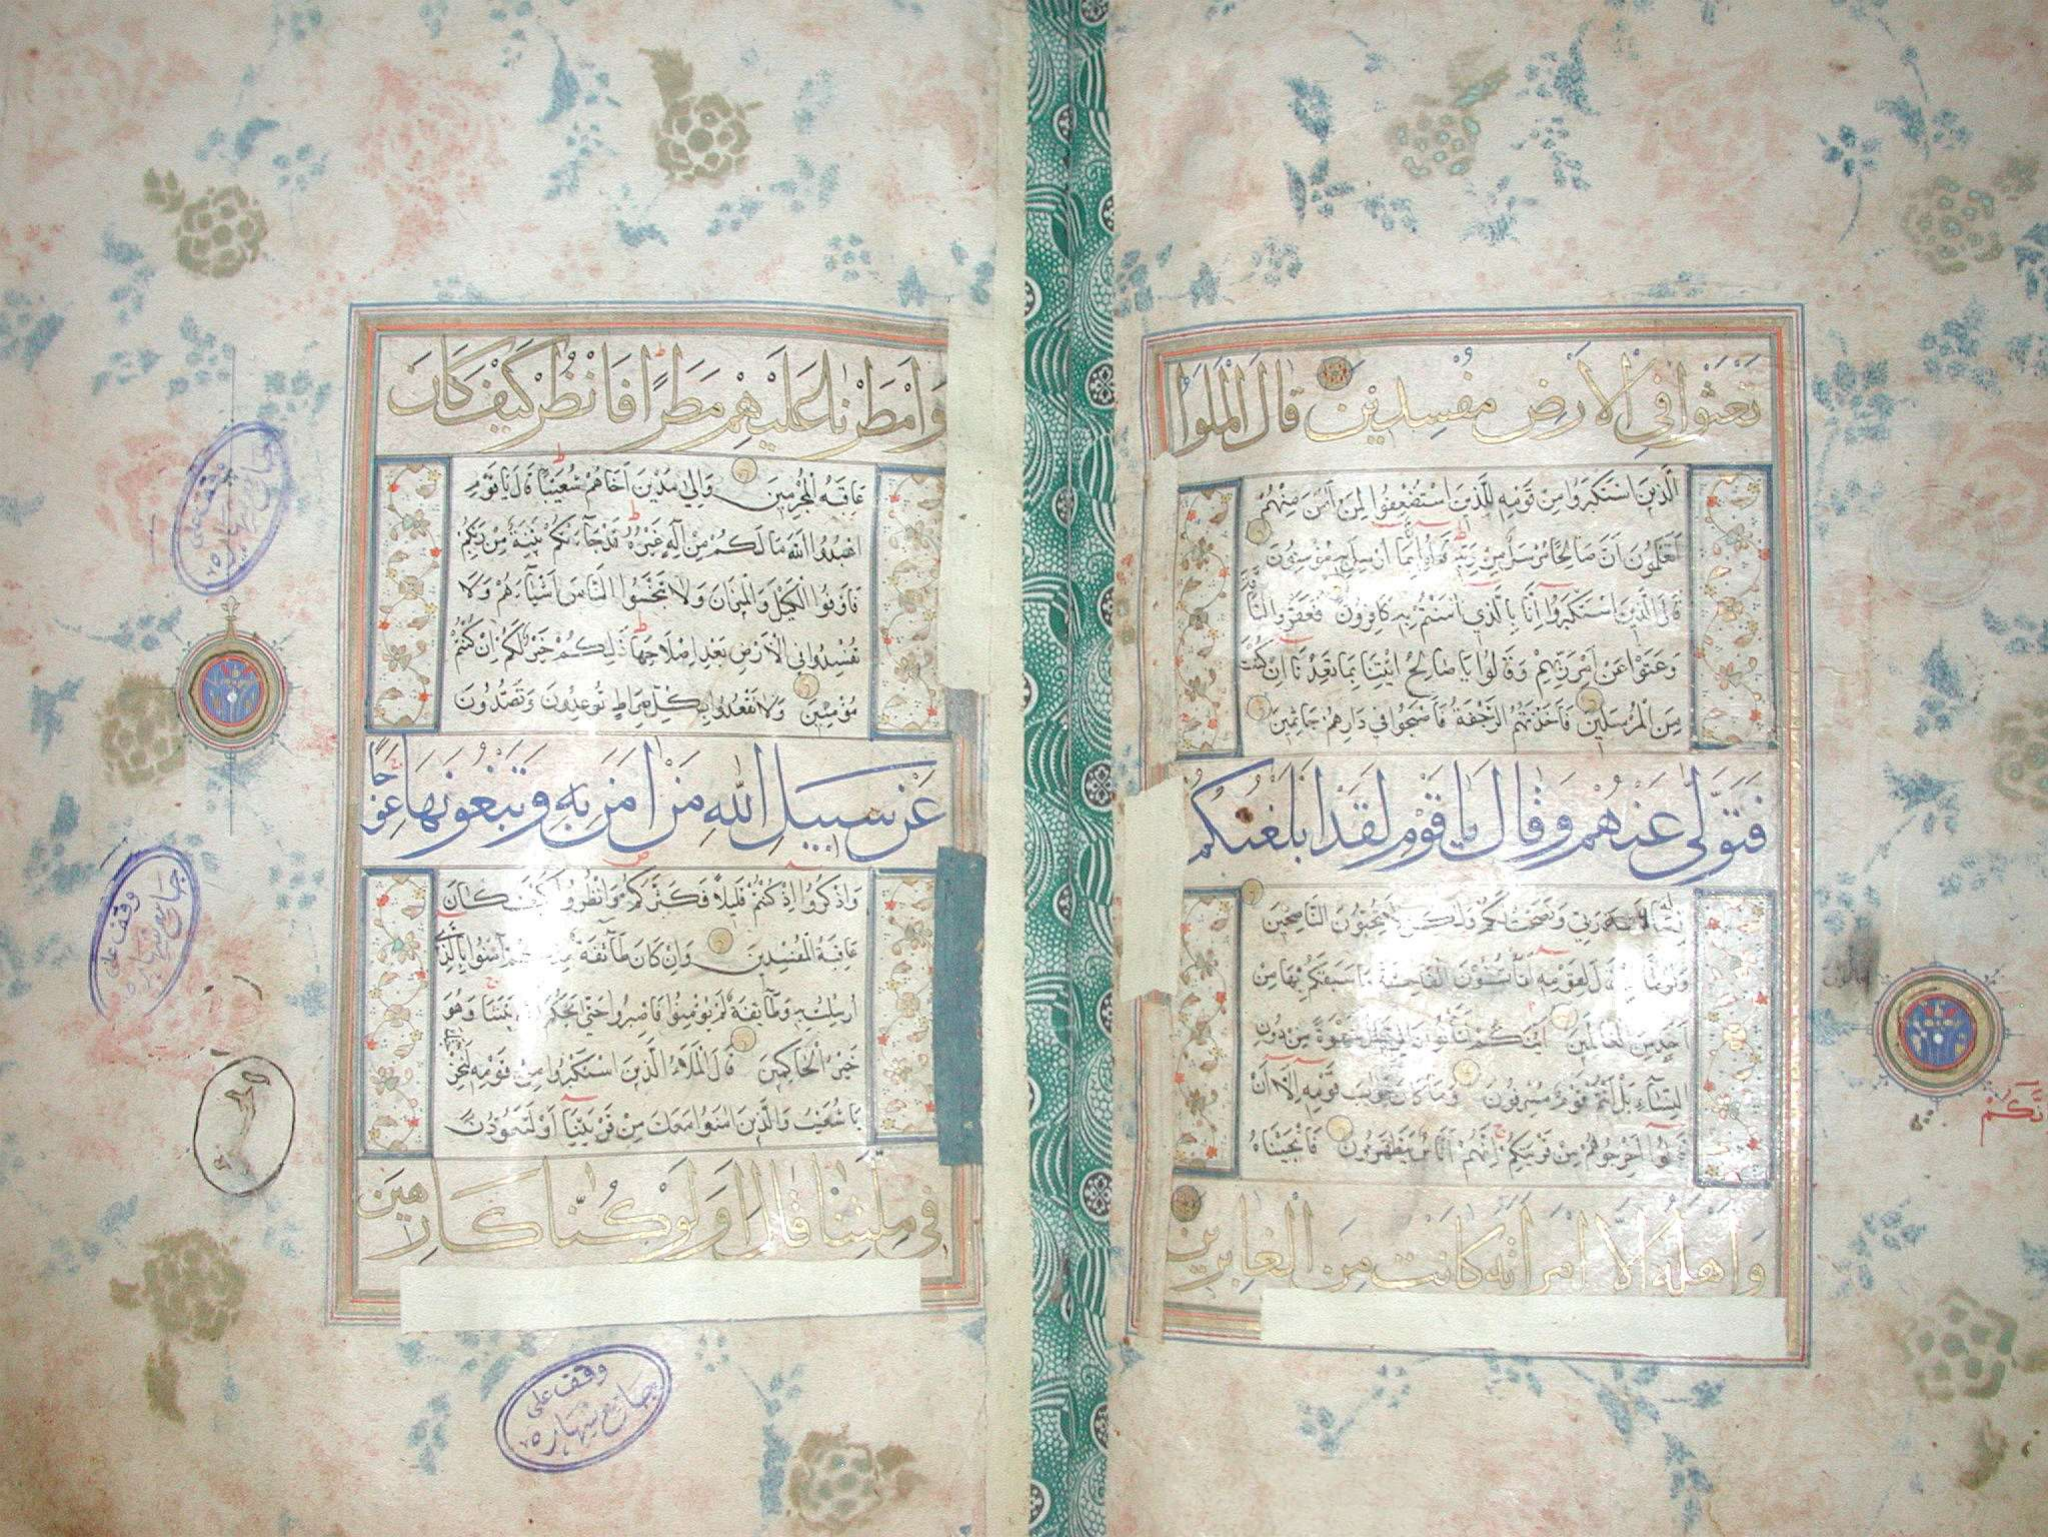 تَعْثَوْا فِي الْاَرْضِ مُفْسِدِينَ قَالَ الْمَلَؤُا
الَّذِينَ اسْتَكْبَرُوا مِنْ قَوْمِهِ لِلَّذِينَ اسْتُضْعِفُوا لِمَنْ اٰمَنَ مِنْهُمْ
اَتَعْلَمُونَ اَنَّ صَالِحًا مُرْسَلٌ مِنْ رَبِّهِ قَالُوا اِنَّا بِمَا اُرْسِلَ بِهِ مُؤْمِنُونَ
قَالَ الَّذِينَ اسْتَكْبَرُوا اِنَّا بِالَّذِي اٰمَنْتُمْ بِهِ كَافِرُونَ فَعَقَرُوا النَّاقَةَ
وَعَتَوْا عَنْ اَمْرِ رَبِّهِمْ وَقَالُوا يَا صَالِحُ ائْتِنَا بِمَا تَعِدُنَا اِنْ كُنْتَ
مِنَ الْمُرْسَلِينَ فَاَخَذَتْهُمُ الرَّجْفَةُ فَاَصْبَحُوا فِي دَارِهِمْ جَاثِمِينَ
فَتَوَلّٰى عَنْهُمْ وَقَالَ يَا قَوْمِ لَقَدْ اَبْلَغْتُكُمْ
رِسَالَةَ رَبِّي وَنَصَحْتُ لَكُمْ وَلٰكِنْ لَا تُحِبُّونَ النَّاصِحِينَ
وَلُوطًا اِذْ قَالَ لِقَوْمِهِ اَتَأْتُونَ الْفَاحِشَةَ مَا سَبَقَكُمْ بِهَا مِنْ
اَحَدٍ مِنَ الْعَالَمِينَ اَئِنَّكُمْ لَتَأْتُونَ الرِّجَالَ شَهْوَةً مِنْ دُونِ
النِّسَاءِ بَلْ اَنْتُمْ قَوْمٌ مُسْرِفُونَ وَمَا كَانَ جَوَابَ قَوْمِهِ اِلَّا اَنْ
قَالُوا اَخْرِجُوهُمْ مِنْ قَرْيَتِكُمْ اِنَّهُمْ اُنَاسٌ يَتَطَهَّرُونَ فَاَنْجَيْنَاهُ
وَاَهْلَهُ اِلَّا امْرَاَتَهُ كَانَتْ مِنَ الْغَابِرِينَ
وَاَمْطَرْنَا عَلَيْهِمْ مَطَرًا فَانْظُرْ كَيْفَ كَانَ
عَاقِبَةُ الْمُجْرِمِينَ وَاِلٰى مَدْيَنَ اَخَاهُمْ شُعَيْبًا قَالَ يَا قَوْمِ
اعْبُدُوا اللّٰهَ مَا لَكُمْ مِنْ اِلٰهٍ غَيْرُهُ قَدْ جَاءَتْكُمْ بَيِّنَةٌ مِنْ رَبِّكُمْ
فَاَوْفُوا الْكَيْلَ وَالْمِيزَانَ وَلَا تَبْخَسُوا النَّاسَ اَشْيَاءَهُمْ وَلَا
تُفْسِدُوا فِي الْاَرْضِ بَعْدَ اِصْلَاحِهَا ذٰلِكُمْ خَيْرٌ لَكُمْ اِنْ كُنْتُمْ
مُؤْمِنِينَ وَلَا تَقْعُدُوا بِكُلِّ صِرَاطٍ تُوعِدُونَ وَتَصُدُّونَ
عَنْ سَبِيلِ اللّٰهِ مَنْ اٰمَنَ بِهِ وَتَبْغُونَهَا عِوَجًا
وَاذْكُرُوا اِذْ كُنْتُمْ قَلِيلًا فَكَثَّرَكُمْ وَانْظُرُوا كَيْفَ كَانَ
عَاقِبَةُ الْمُفْسِدِينَ وَاِنْ كَانَ طَائِفَةٌ مِنْكُمْ اٰمَنُوا بِالَّذِي
اُرْسِلْتُ بِهِ وَطَائِفَةٌ لَمْ يُؤْمِنُوا فَاصْبِرُوا حَتّٰى يَحْكُمَ اللّٰهُ بَيْنَنَا وَهُوَ
خَيْرُ الْحَاكِمِينَ قَالَ الْمَلَاُ الَّذِينَ اسْتَكْبَرُوا مِنْ قَوْمِهِ لَنُخْرِجَنَّكَ
يَا شُعَيْبُ وَالَّذِينَ اٰمَنُوا مَعَكَ مِنْ قَرْيَتِنَا اَوْ لَتَعُودُنَّ
فِي مِلَّتِنَا قَالَ اَوَلَوْ كُنَّا كَارِهِينَ
وقف على
جامع شهاره
وقف على
جامع شهاره
وقف على
جامع شهاره